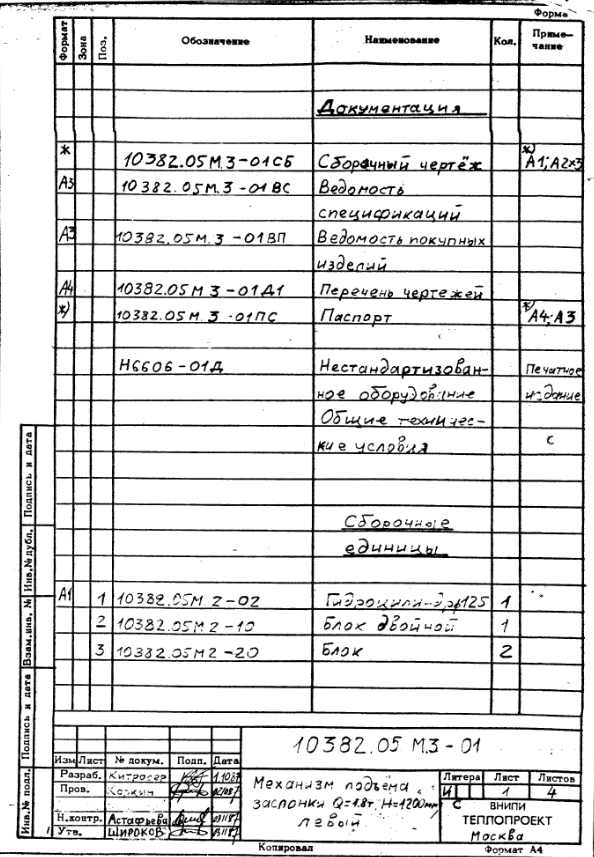 Форма
Формат Зона Поз. Обозначение Наименование Кол. Приме-
чание
Документация
* 10382.05М.3-01СБ Сборочный чертёж *) А1; А2х3
А3 10382.05М.3-01ВС Ведомость
спецификаций
А3 10382.05М.3-01ВП Ведомость покупных
изделий
А4 10382.05М 3-01Д1 Перечень чертежей
*) 10382.05М.3-01ПС Паспорт *) А4; А3
Н6606-01Д Нестандартизован- Печатное
ное оборудование издание
Общие техничес-
кие условия с
Сборочные
единицы
А1 1 10382.05М 2-02 Гидроцилиндр 125 1
2 10382.05М2-10 Блок двойной 1
3 10382.05М2-20 Блок 2
Инв.№ подл. Подпись и дата Взам.инв. № Инв.№ дубл. Подпись и дата
10382.05 М.3-01
Изм Лист № докум. Подп. Дата
Разраб. Китросер
Пров. Коркин
Н.контр. Астафьева
Утв. Широков
Механизм подъёма
заслонки Q=1.8т, Н=1200мм
левый
Литера Лист Листов
И 1 4
С ВНИПИ
ТЕПЛОПРОЕКТ
Москва
Копировал Формат А4